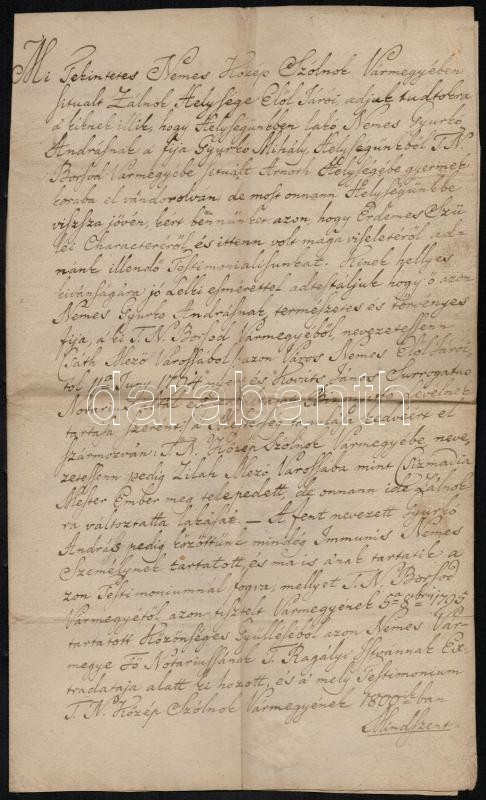 Mi Tekintetes Nemes Közép Szólnok Vármegyében
situált Zálnok Helysége Elöl Járói, adjuk tudtokra
a kiknek illik, hogy Helységünkben lakó, Nemes Gyurkó
Andrásnak a fija Gyurkó Mihály, Helységünkből T. N.
Borsod Vármegyébe situált Arnoth Helységébe gyermek
korába el vándorolván, de most onnann Helységünkbe
viszsza jövén, kért bennünket azon, hogy Érdemes Szü
lei Characteréről, és ittenn volt maga viseletéről ad-
nánk illendő Testimonialisunkat. Kinek hellyes
kivánságára jó Lelki esmérettel adtestáljuk hogy ő azon
Nemes Gyurkó Andrásnak, természetes és törvényes
fija, a ki T. N. Borsod Vármegyéből, nevezetessenn
Sáth Mező Várossából azon Város Nemes Elöl Járói
tól 11a Juny 1794 és Kováts János Surrogatus
Notarius
tartása szerént kedvéért el
származván: T. N. Közép Szólnok Vármegyébe, neve,
zetessenn pedig Zilah Mező Várossába mint Csizmadia
Mester Ember meg telepedett, de onnann ide Zálnok
ra változtatta lakását. — A fent nevezett Gyurkó
András pedig közöttünk mindég Immunis Nemes
Személynek tartatott, és ma is annak tartatik a
zon Testimoniumnál fogva, mellyet T. N. Borsod
Vármegyétől azon tisztelt Vármegyének 5a 8bris 1795
tartatott Közönséges Gyülléséből azon Nemes Vár-
megye Fő Notariussának T. Ragályi Istvannak Ex
tradatája alatt ki hozott, és a mely Testimonium
T. N. Közép Szólnok Vármegyének 1800ik ban
Mindszent
darabanth